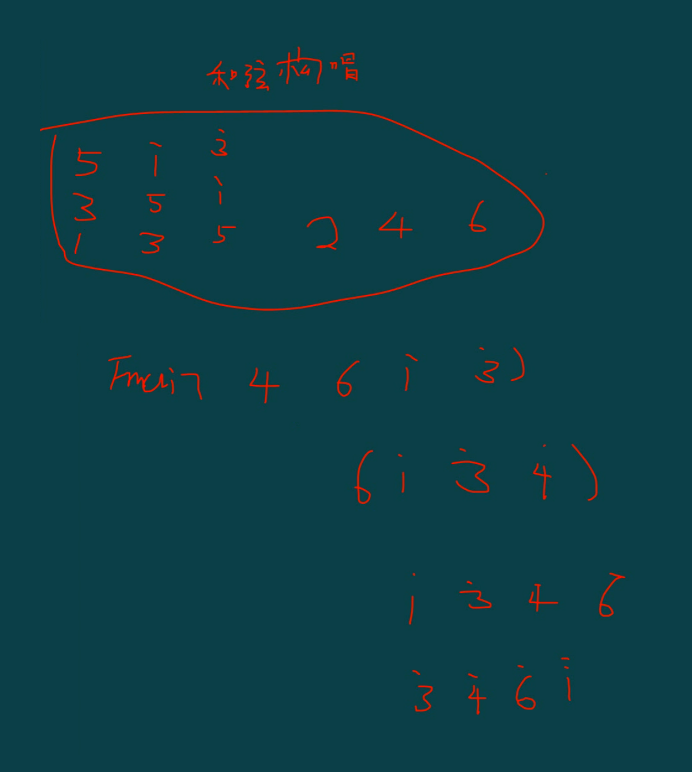 和弦构唱
5 i 3̇
3 5 i
1 3 5 2 4 6
Fmaj7 4 6 i 3̇)
(6 i 3̇ 4̇)
i 3̇ 4 6
3̇ 4̇ 6̇ i̇